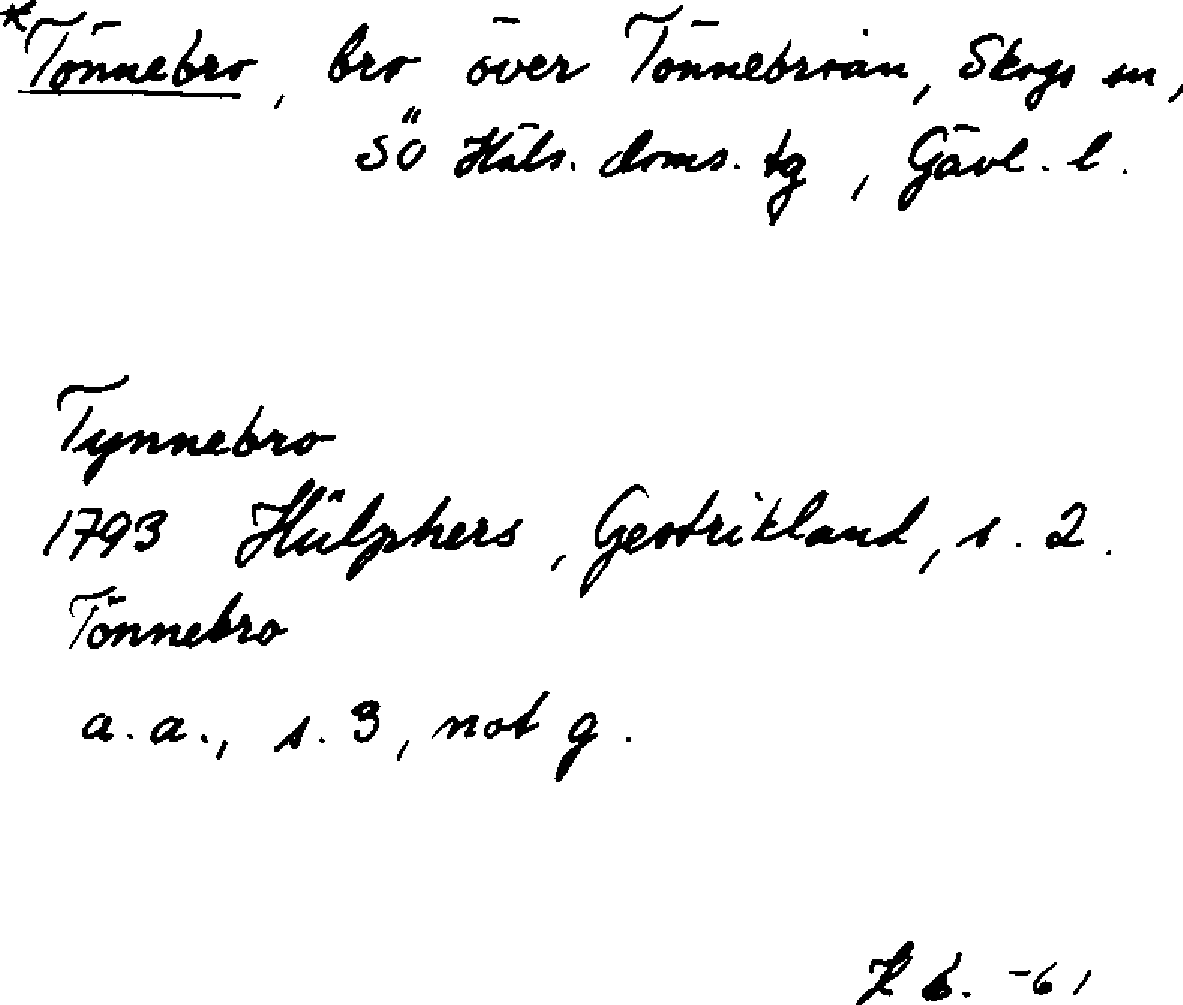 *Tönnebro, bro över Tönnebroån, Skogs sn,
SÖ Häls. doms. tg, Gävl. l.
Tynnebro
1793 Hülphers, Gestrikland, s. 2.
Tönnebro
a. a., s. 3, not g.
-61